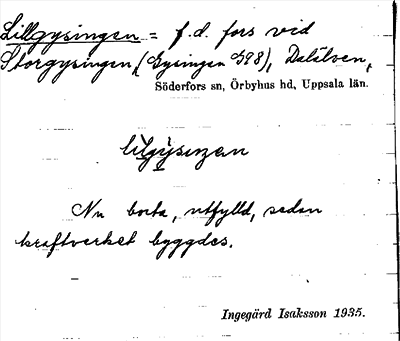 Lillgysingen = f.d. fors vid
Storgysingen, (Gysingen 998), Dalälven,
Söderfors sn, Örbyhus hd, Uppsala län.
lilgysiŋen
Nu borta, utfylld, sedan
kraftverket byggdes.
Ingegärd Isaksson 1935.